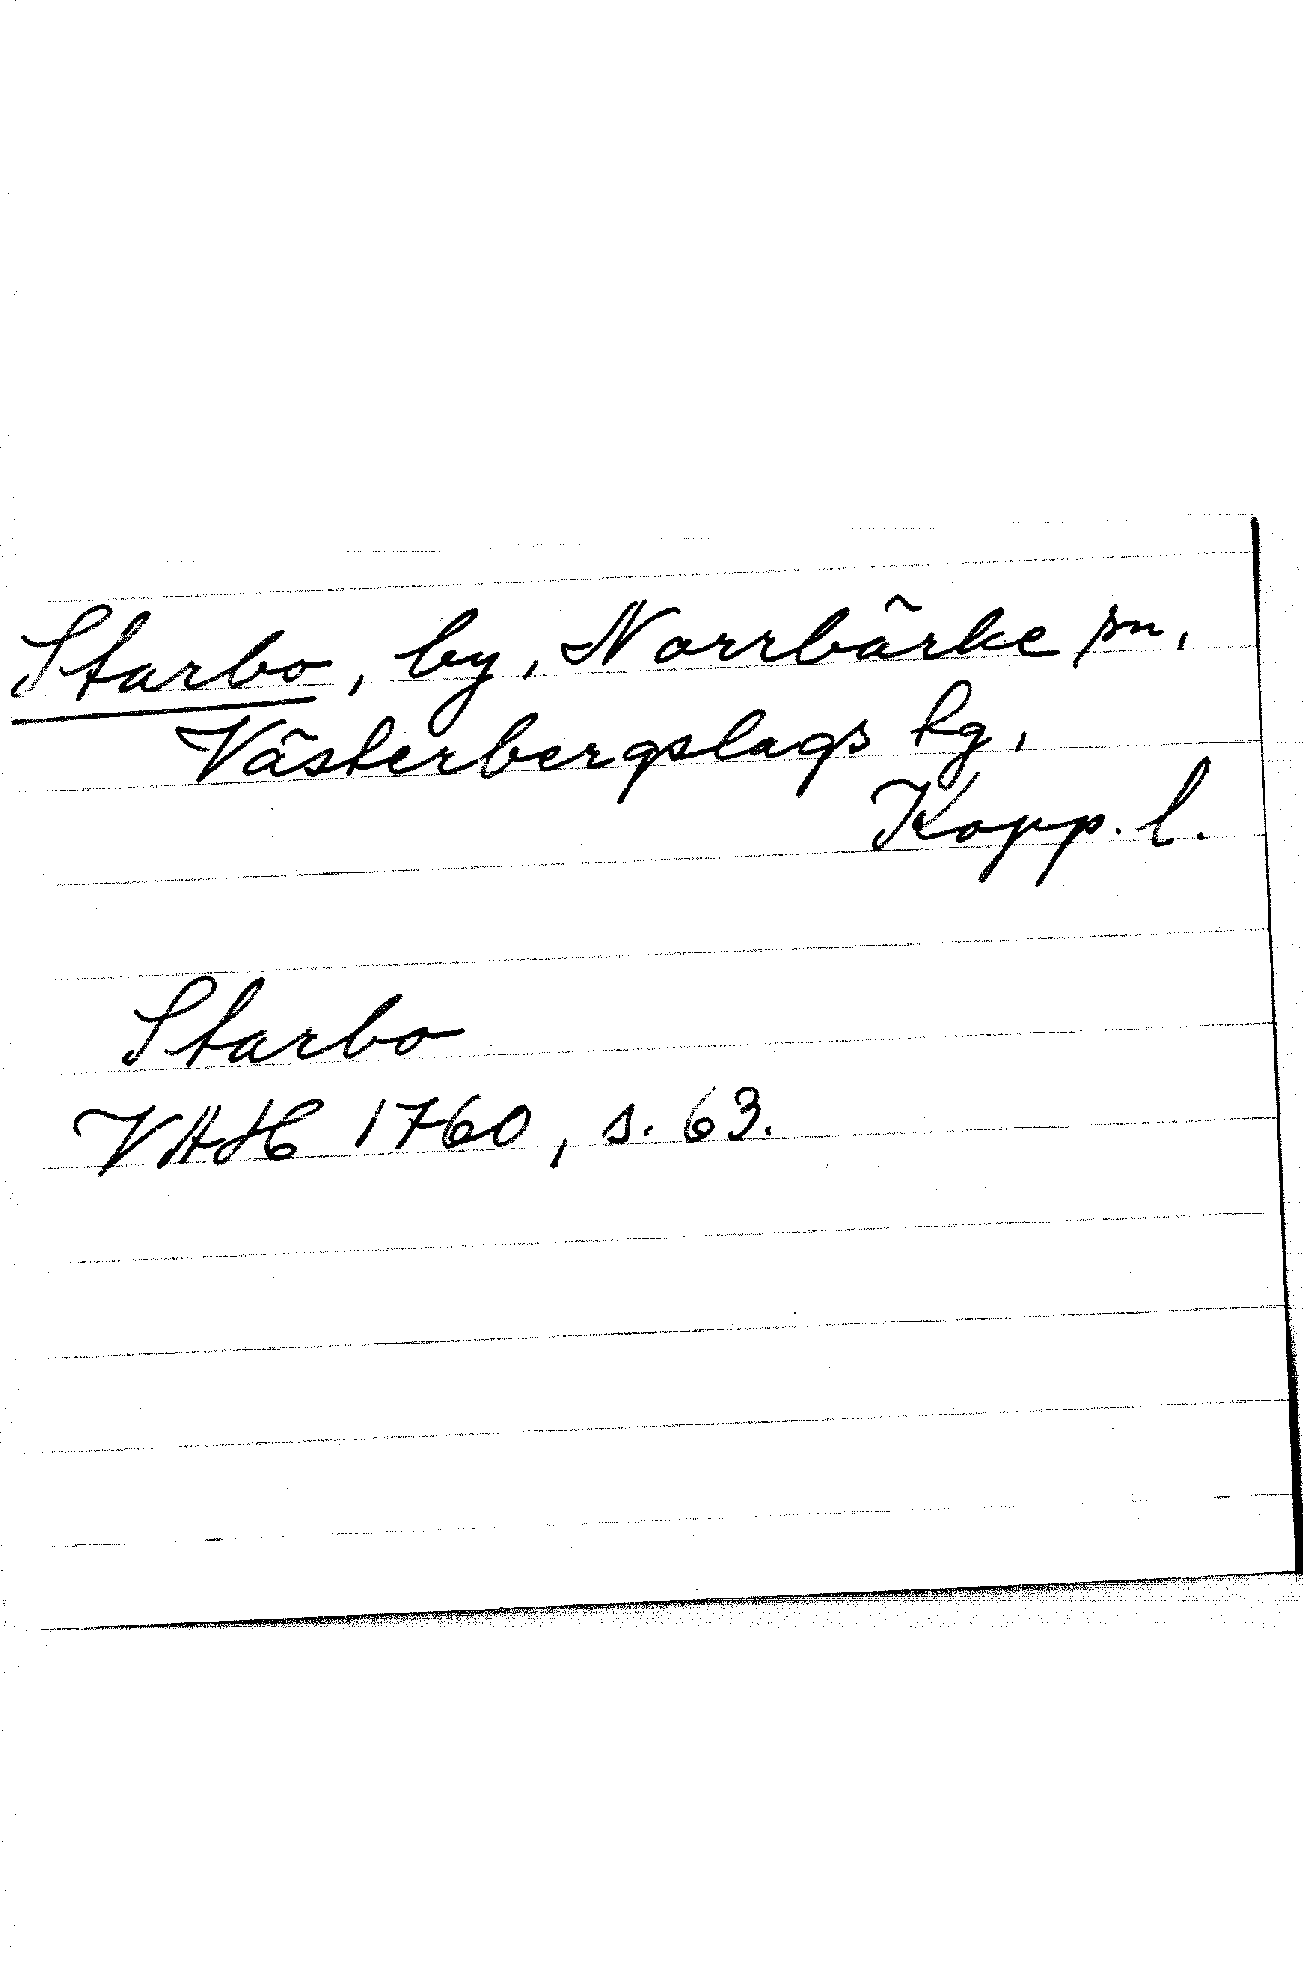 Starbo, by, Norrbärke sn,
Västerbergslags tg,
Kopp. l.
Starbo
VAH 1760, s. 63.